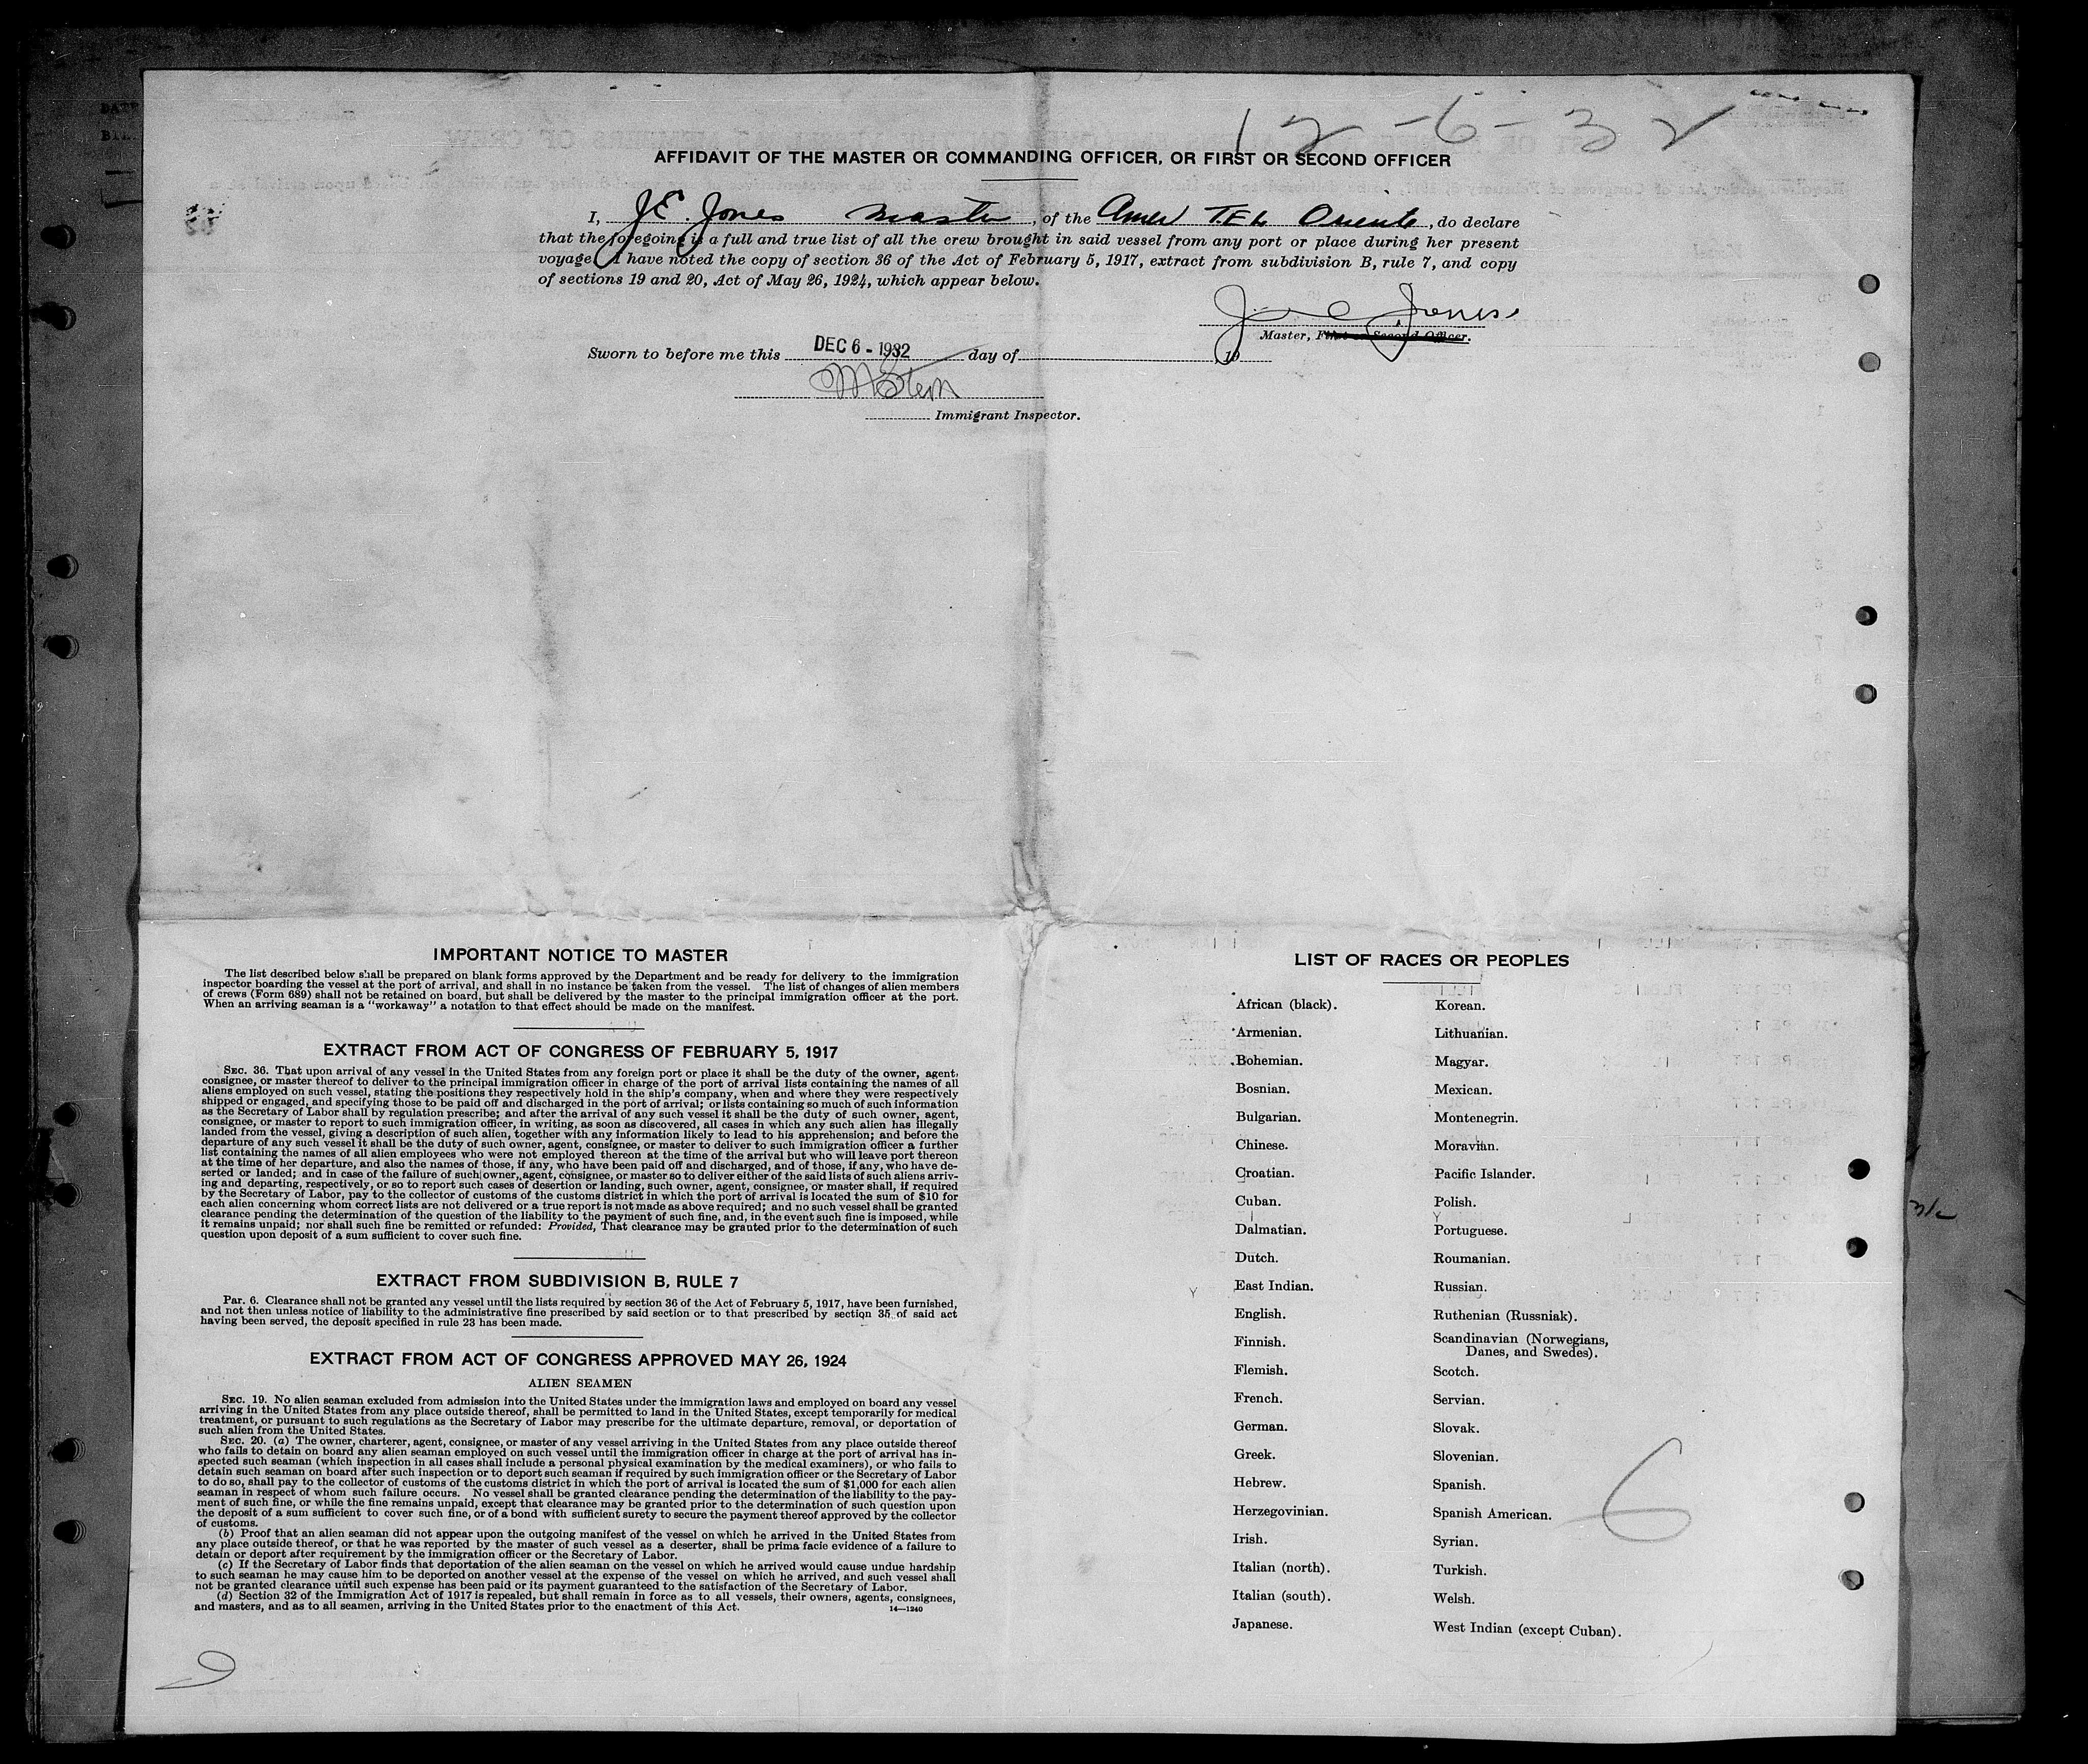 12-6-32
AFFIDAVIT OF THE MASTER OR COMMANDING OFFICER, OR FIRST OR SECOND OFFICER
I, J.E. Jones Master, of the Amer T.E.L. Oriente, do declare
that the foregoing is a full and true list of all the crew brought in said vessel from any port or place during her present
voyage. I have noted the copy of section 36 of the Act of February 5, 1917, extract from subdivision B, rule 7, and copy
of sections 19 and 20, Act of May 26, 1924, which appear below.
J E Jones
Master, First or Second Officer.
Sworn to before me this DEC 6 - 1932 day of 19
M Stern
Immigrant Inspector.
IMPORTANT NOTICE TO MASTER
The list described below shall be prepared on blank forms approved by the Department and be ready for delivery to the immigration
inspector boarding the vessel at the port of arrival, and shall in no instance be taken from the vessel. The list of changes of alien members
of crews (Form 689) shall not be retained on board, but shall be delivered by the master to the principal immigration officer at the port.
When an arriving seaman is a "workaway" a notation to that effect should be made on the manifest.
EXTRACT FROM ACT OF CONGRESS OF FEBRUARY 5, 1917
SEC. 36. That upon arrival of any vessel in the United States from any foreign port or place it shall be the duty of the owner, agent,
consignee, or master thereof to deliver to the principal immigration officer in charge of the port of arrival lists containing the names of all
aliens employed on such vessel, stating the positions they respectively hold in the ship's company, when and where they were respectively
shipped or engaged, and specifying those to be paid off and discharged in the port of arrival; or lists containing so much of such information
as the Secretary of Labor shall by regulation prescribe; and after the arrival of any such vessel it shall be the duty of such owner, agent,
consignee, or master to report to such immigration officer, in writing, as soon as discovered, all cases in which any such alien has illegally
landed from the vessel, giving a description of such alien, together with any information likely to lead to his apprehension; and before the
departure of any such vessel it shall be the duty of such owner, agent, consignee, or master to deliver to such immigration officer a further
list containing the names of all alien employees who were not employed thereon at the time of the arrival but who will leave port thereon
at the time of her departure, and also the names of those, if any, who have been paid off and discharged, and of those, if any, who have de-
serted or landed; and in case of the failure of such owner, agent, consignee, or master so to deliver either of the said lists of such aliens arriv-
ing and departing, respectively, or so to report such cases of desertion or landing, such owner, agent, consignee, or master shall, if required
by the Secretary of Labor, pay to the collector of customs of the customs district in which the port of arrival is located the sum of $10 for
each alien concerning whom correct lists are not delivered or a true report is not made as above required; and no such vessel shall be granted
clearance pending the determination of the question of the liability to the payment of such fine, and, in the event such fine is imposed, while
it remains unpaid; nor shall such fine be remitted or refunded: Provided, That clearance may be granted prior to the determination of such
question upon deposit of a sum sufficient to cover such fine.
EXTRACT FROM SUBDIVISION B, RULE 7
Par. 6. Clearance shall not be granted any vessel until the lists required by section 36 of the Act of February 5, 1917, have been furnished,
and not then unless notice of liability to the administrative fine prescribed by said section or to that prescribed by section 35 of said act
having been served, the deposit specified in rule 23 has been made.
EXTRACT FROM ACT OF CONGRESS APPROVED MAY 26, 1924
ALIEN SEAMEN
SEC. 19. No alien seaman excluded from admission into the United States under the immigration laws and employed on board any vessel
arriving in the United States from any place outside thereof, shall be permitted to land in the United States, except temporarily for medical
treatment, or pursuant to such regulations as the Secretary of Labor may prescribe for the ultimate departure, removal, or deportation of
such alien from the United States.
SEC. 20. (a) The owner, charterer, agent, consignee, or master of any vessel arriving in the United States from any place outside thereof
who fails to detain on board any alien seaman employed on such vessel until the immigration officer in charge at the port of arrival has in-
spected such seaman (which inspection in all cases shall include a personal physical examination by the medical examiners), or who fails to
detain such seaman on board after such inspection or to deport such seaman if required by such immigration officer or the Secretary of Labor
to do so, shall pay to the collector of customs of the customs district in which the port of arrival is located the sum of $1,000 for each alien
seaman in respect of whom such failure occurs. No vessel shall be granted clearance pending the determination of the liability to the pay-
ment of such fine, or while the fine remains unpaid, except that clearance may be granted prior to the determination of such question upon
the deposit of a sum sufficient to cover such fine, or of a bond with sufficient surety to secure the payment thereof approved by the collector
of customs.
(b) Proof that an alien seaman did not appear upon the outgoing manifest of the vessel on which he arrived in the United States from
any place outside thereof, or that he was reported by the master of such vessel as a deserter, shall be prima facie evidence of a failure to
detain or deport after requirement by the immigration officer or the Secretary of Labor.
(c) If the Secretary of Labor finds that deportation of the alien seaman on the vessel on which he arrived would cause undue hardship
to such seaman he may cause him to be deported on another vessel at the expense of the vessel on which he arrived, and such vessel shall
not be granted clearance until such expense has been paid or its payment guaranteed to the satisfaction of the Secretary of Labor.
(d) Section 32 of the Immigration Act of 1917 is repealed, but shall remain in force as to all vessels, their owners, agents, consignees,
and masters, and as to all seamen, arriving in the United States prior to the enactment of this Act.
14—1240
LIST OF RACES OR PEOPLES
African (black).
Armenian.
Bohemian.
Bosnian.
Bulgarian.
Chinese.
Croatian.
Cuban.
Dalmatian.
Dutch.
East Indian.
English.
Finnish.
Flemish.
French.
German.
Greek.
Hebrew.
Herzegovinian.
Irish.
Italian (north).
Italian (south).
Japanese.
Korean.
Lithuanian.
Magyar.
Mexican.
Montenegrin.
Moravian.
Pacific Islander.
Polish.
Portuguese.
Roumanian.
Russian.
Ruthenian (Russniak).
Scandinavian (Norwegians,
Danes, and Swedes).
Scotch.
Servian.
Slovak.
Slovenian.
Spanish.
Spanish American.
Syrian.
Turkish.
Welsh.
West Indian (except Cuban).
6